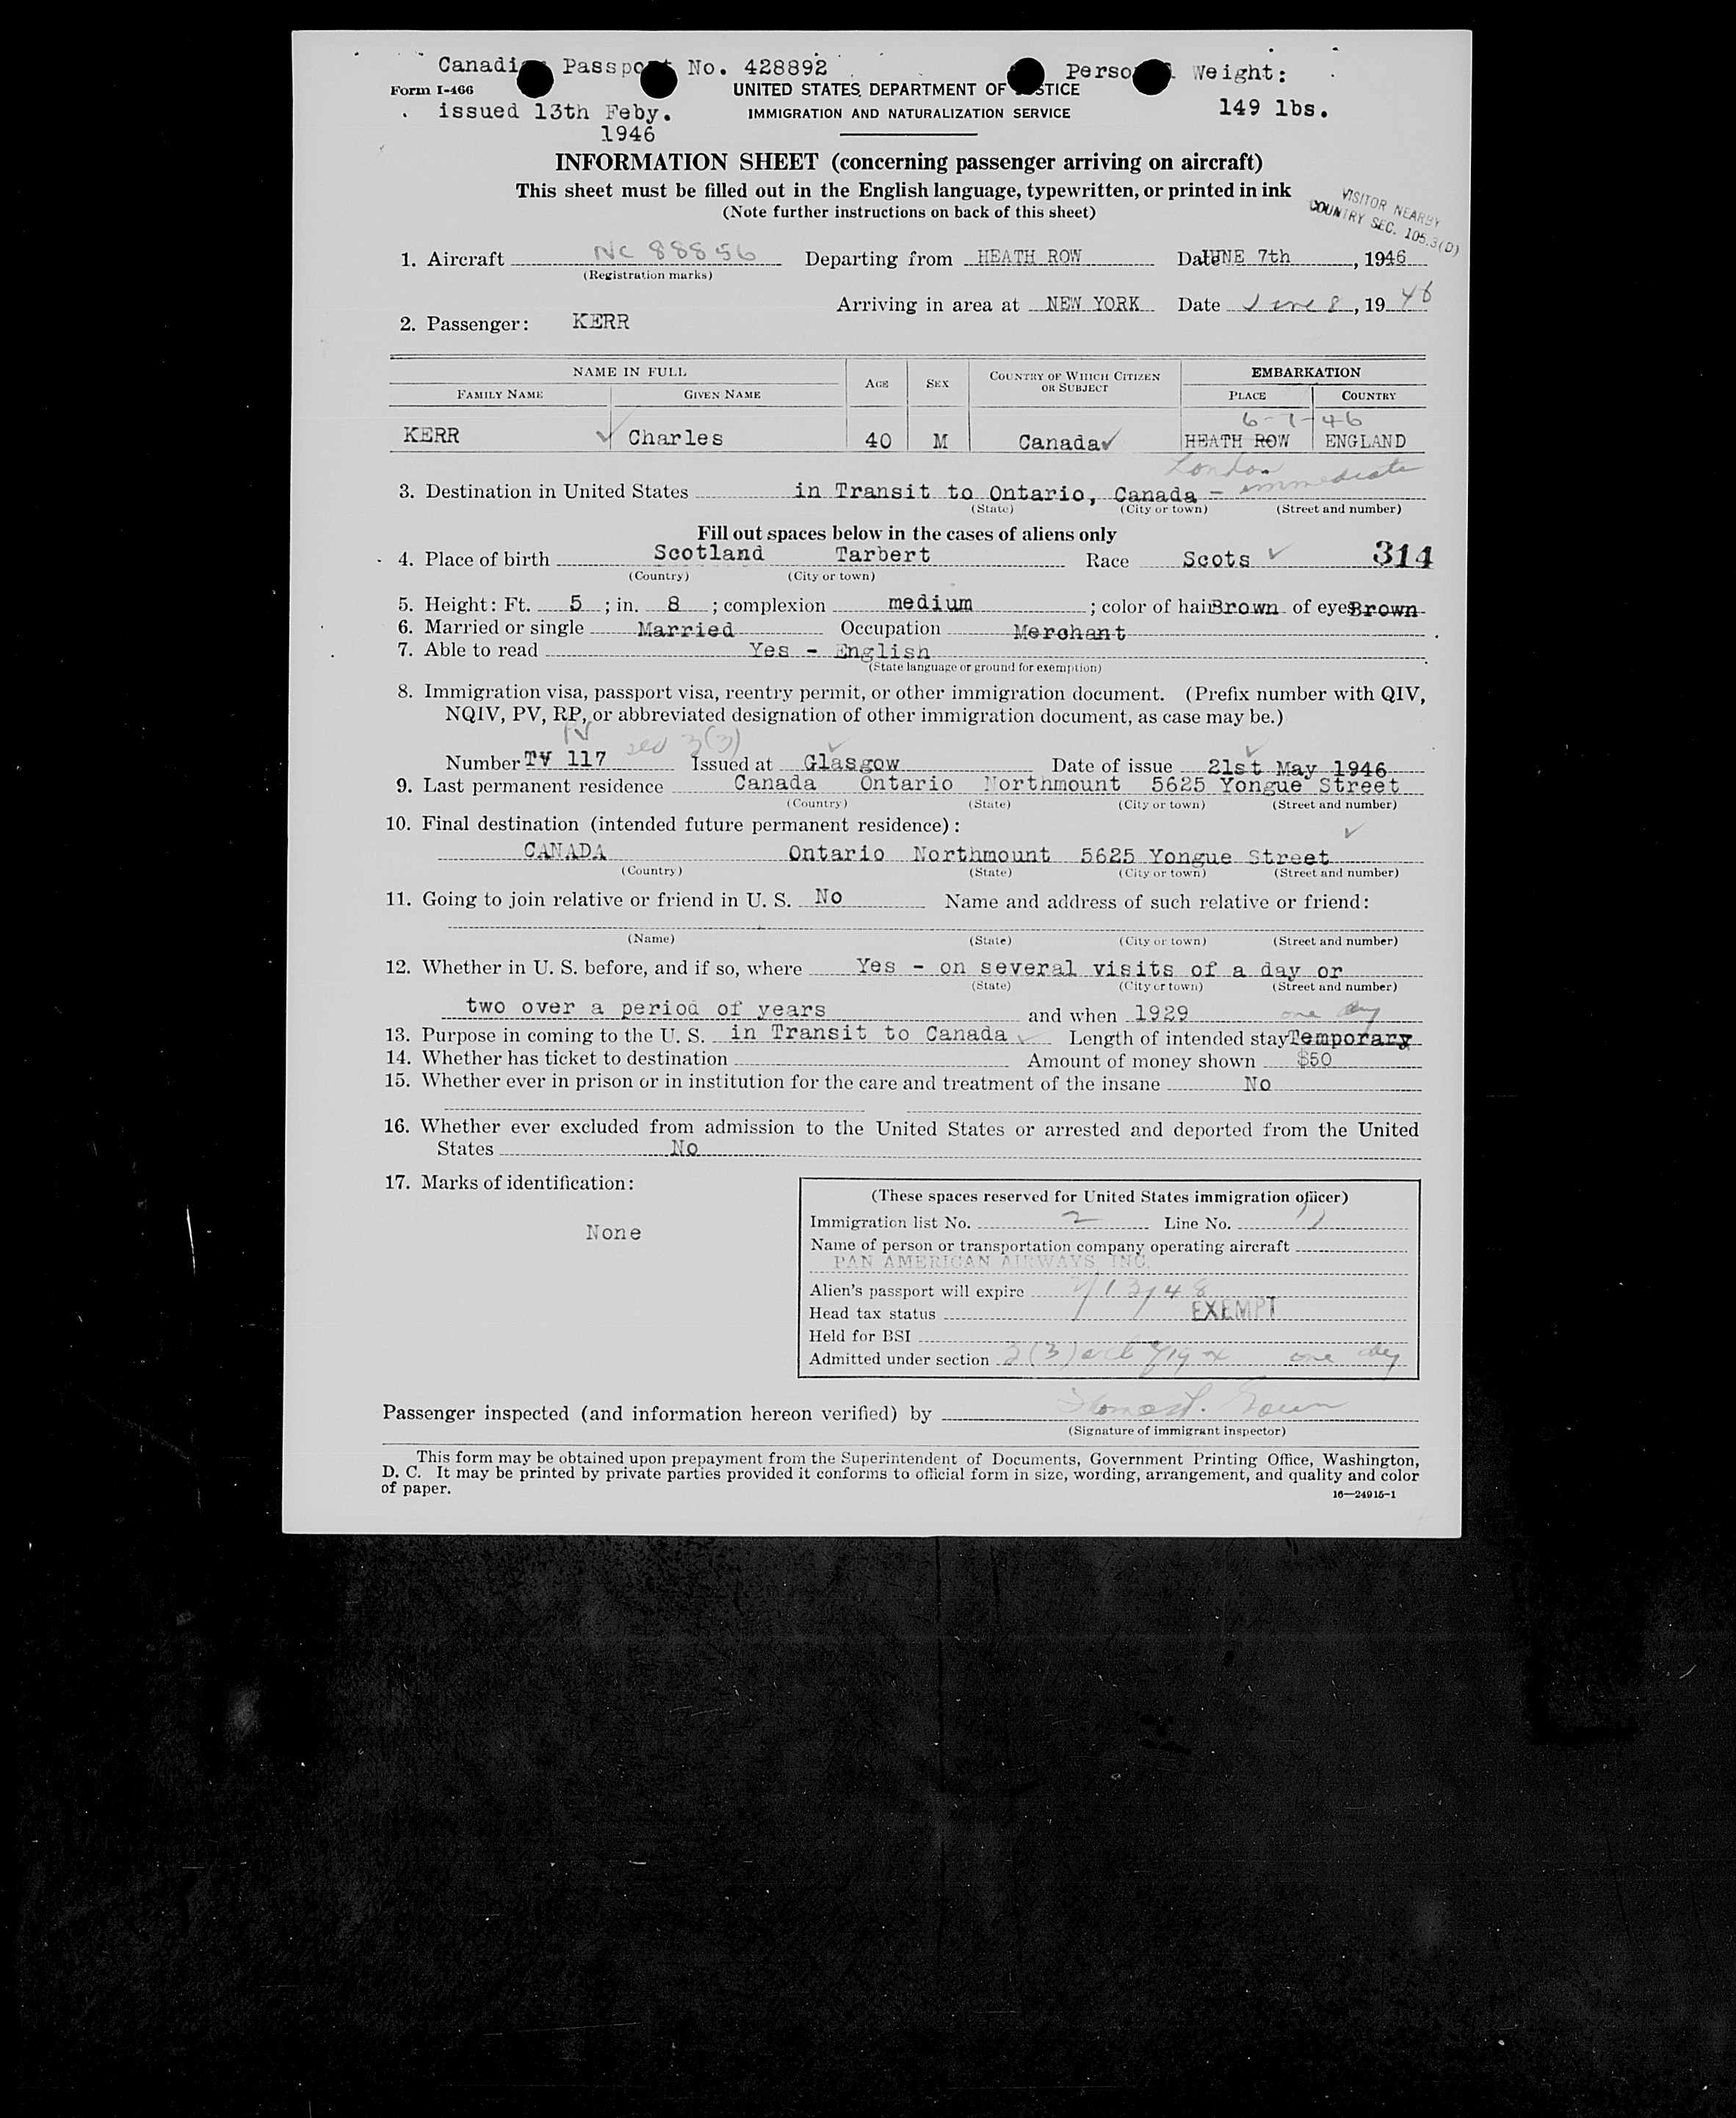 Canadi Passpo No. 428892 Perso l Weight:
Form I-466 UNITED STATES DEPARTMENT OF STICE
issued 13th Feby. IMMIGRATION AND NATURALIZATION SERVICE 149 lbs.
1946
INFORMATION SHEET (concerning passenger arriving on aircraft)
This sheet must be filled out in the English language, typewritten, or printed in ink
(Note further instructions on back of this sheet)
VISITOR NEARBY
COUNTRY SEC. 105.3(D)
1. Aircraft NC 88856 Departing from HEATH ROW Date JUNE 7th, 1946
(Registration marks)
Arriving in area at NEW YORK Date June 8, 1946
2. Passenger: KERR
NAME IN FULL AGE SEX COUNTRY OF WHICH CITIZEN OR SUBJECT EMBARKATION
FAMILY NAME GIVEN NAME PLACE COUNTRY
6-7-46
KERR Charles 40 M Canada HEATH ROW ENGLAND
London
3. Destination in United States in Transit to Ontario, Canada - immediate
(State) (City or town) (Street and number)
Fill out spaces below in the cases of aliens only
4. Place of birth Scotland Tarbert Race Scots 314
(Country) (City or town)
5. Height: Ft. 5; in. 8; complexion medium; color of hair Brown of eyes Brown
6. Married or single Married Occupation Merchant
7. Able to read Yes - English
(State language or ground for exemption)
8. Immigration visa, passport visa, reentry permit, or other immigration document. (Prefix number with QIV,
NQIV, PV, RP, or abbreviated designation of other immigration document, as case may be.)
3(3)
Number TV 117 Issued at Glasgow Date of issue 21st May 1946
9. Last permanent residence Canada Ontario Northmount 5625 Yongue Street
(Country) (State) (City or town) (Street and number)
10. Final destination (intended future permanent residence):
CANADA Ontario Northmount 5625 Yongue Street
(Country) (State) (City or town) (Street and number)
11. Going to join relative or friend in U. S. No Name and address of such relative or friend:
(Name) (State) (City or town) (Street and number)
12. Whether in U. S. before, and if so, where Yes - on several visits of a day or
(State) (City or town) (Street and number)
two over a period of years and when 1929 one day
13. Purpose in coming to the U. S. in Transit to Canada Length of intended stay Temporary
14. Whether has ticket to destination Amount of money shown $50
15. Whether ever in prison or in institution for the care and treatment of the insane No
16. Whether ever excluded from admission to the United States or arrested and deported from the United
States No
17. Marks of identification:
None
(These spaces reserved for United States immigration officer)
Immigration list No. 2 Line No. 11
Name of person or transportation company operating aircraft
PAN AMERICAN AIRWAYS INC.
Alien's passport will expire 2/13/48
Head tax status EXEMPT
Held for BSI
Admitted under section 3(3) one day
Passenger inspected (and information hereon verified) by
(Signature of immigrant inspector)
This form may be obtained upon prepayment from the Superintendent of Documents, Government Printing Office, Washington,
D. C. It may be printed by private parties provided it conforms to official form in size, wording, arrangement, and quality and color
of paper.
16—24915-1